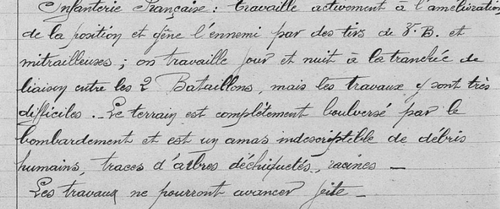 Infanterie Française : travaille activement à l'amélioration
de la position et gêne l'ennemi par des tirs de V.B. et
mitrailleuses ; on travaille jour et nuit à la tranchée de
liaison entre les 2 Bataillons, mais les travaux y sont très
difficiles. Le terrain est complètement boulversé par le
bombardement et est un amas indescriptible de débris
humains, traces d'arbres déchiquetés, racines —
Les travaux ne pourront avancer vite —